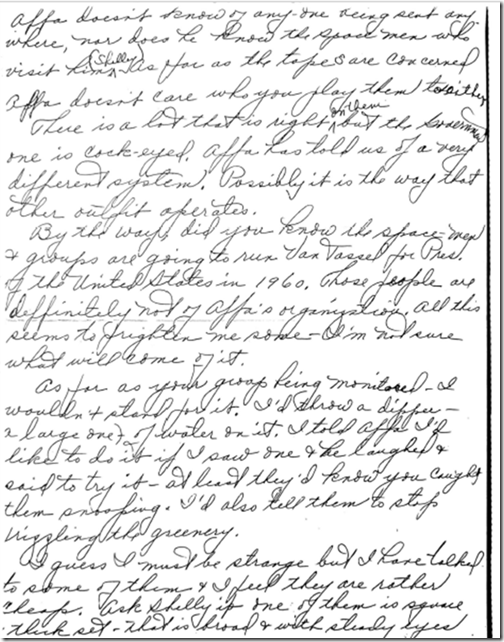 Affa doesn't know of any-one being sent any
where, nor does he know the space men who
visit him, (Shelly) As far as the tapes are concerned
Affa doesn't care who you play them to either
There is a lot that is right on them but the Government
one is cock-eyed. Affa has told us of a very
different system! Possibly it is the way that
other outfit operates.
By the way, did you know the space-men
& groups are going to run Van Tassel for Pres.
of the United States in 1960. Those people are
deffinitely not of Affa's organization. All this
seems to frighten me some - I'm not sure
what will come of it.
As far as your group being monitored - I
wouldn't stand for it. I'd throw a dipper -
a large one, of water on it. I told Affa I'd
like to do it if I saw one & he laughed &
said to try it - at least they'd know you caught
them snooping. I'd also tell them to stop
frizzling the greenery.
I guess I must be strange but I have talked
to some of them & I feel they are rather
cheap. Ask Shelly if one of them is square
thick set - that is broad & with steady eyes